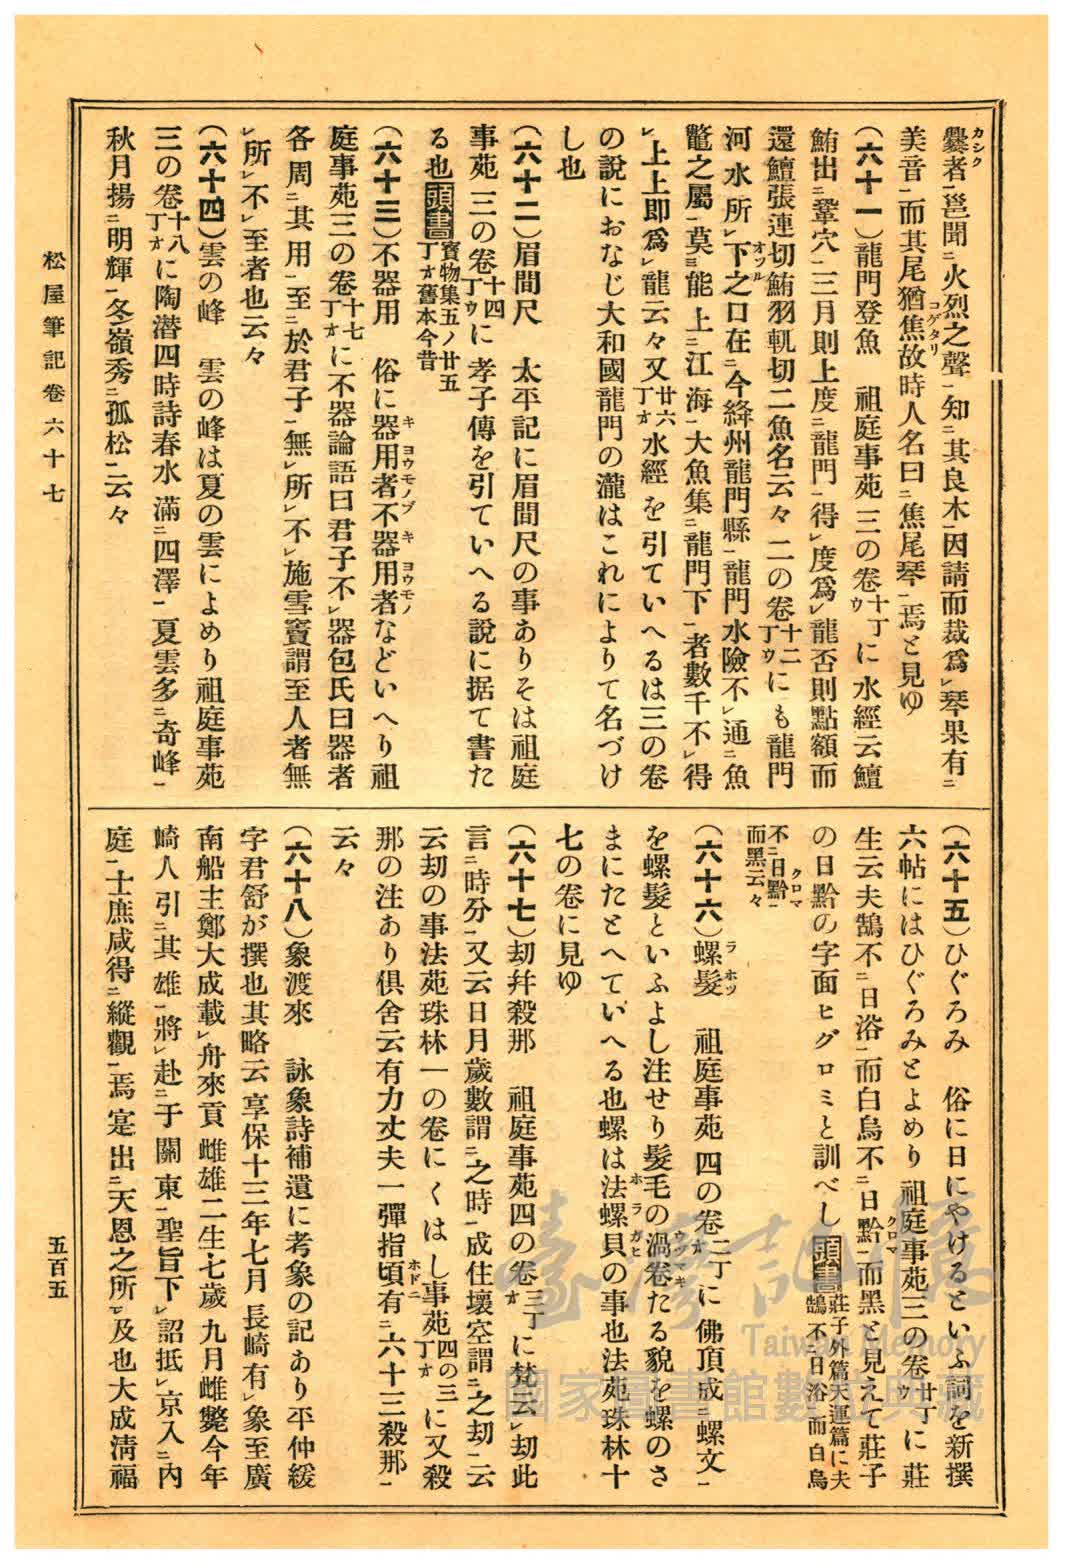 爨者邕聞ニ火烈之聲一知ニ其良木一因請而裁爲レ琴果有ニ
美音一而其尾猶焦故時人名曰ニ焦尾琴一焉と見ゆ
(六十一)龍門登魚 祖庭事苑三の卷十丁ウに水經云鱣
鮪出ニ鞏穴一三月則上度ニ龍門一得レ度爲レ龍否則點額而
還鱣張連切鮪羽軌切二魚名云々 二の卷十二丁ウにも龍門
河水所レ下之口在ニ今絳州龍門縣一龍門水險不レ通ニ魚
鼈之屬一莫ニ能上ニ江海一大魚集ニ龍門下一者數千不レ得
レ上上即爲レ龍云々又廿六丁オ水經を引ていへるは三の卷
の說におなじ大和國龍門の瀧はこれによりて名づけ
し也
(六十二)眉間尺 太平記に眉間尺の事ありそは祖庭
事苑三の卷十四丁ウに孝子傳を引ていへる說に据て書た
る也頭書寳物集五ノ廿五丁オ舊本今昔
(六十三)不器用 俗に器用者不器用者などいへり祖
庭事苑三の卷十七丁オに不器論語曰君子不レ器包氏曰器者
各周ニ其用一至ニ於君子一無レ所レ不レ施雪竇謂至人者無
レ所レ不レ至者也云々
(六十四)雲の峰 雲の峰は夏の雲によめり祖庭事苑
三の卷十八丁オに陶潛四時詩春水滿ニ四澤一夏雲多ニ奇峰一
秋月揚ニ明輝一冬嶺秀ニ孤松一云々
(六十五)ひぐろみ 俗に日にやけるといふ詞を新撰
六帖にはひぐろみとよめり祖庭事苑三の卷廿丁ウに莊
生云夫鵠不ニ日浴一而白烏不ニ日黔一而黑と見えて莊子
の日黔の字面ヒグロミと訓べし頭書莊子外篇天運篇に夫鵠不ニ日浴一而白烏
不ニ日黔一而黑云々
(六十六)螺髮 祖庭事苑四の卷二丁オに佛頂成ニ螺文一
を螺髮といふよし注せり髮毛の渦卷たる貌を螺のさ
まにたとへていへる也螺は法螺貝の事也法苑珠林十
七の卷に見ゆ
(六十七)刧幷殺那 祖庭事苑四の卷三丁オに梵云レ刧此
言ニ時分一又云日月歲數謂ニ之時一成住壞空謂ニ之刧一云
云刧の事法苑珠林一の卷にくはし事苑四の三丁オに又殺
那の注あり俱舍云有力丈夫一彈指頃有ニ六十三殺那一
云々
(六十八)象渡來 詠象詩補遺に考象の記あり平仲緩
字君舒が撰也其略云享保十三年七月長崎有レ象至廣
南船主鄭大成載レ舟來貢雌雄二生七歲九月雌斃今年
崎人引ニ其雄一將レ赴ニ于關東一聖旨下レ詔抵レ京入ニ內
庭一士庶咸得ニ縱觀一焉寔出ニ天恩之所一レ及也大成淸福
松屋筆記卷六十七
五百五
臺灣記憶
Taiwan Memory
國家圖書館數位典藏